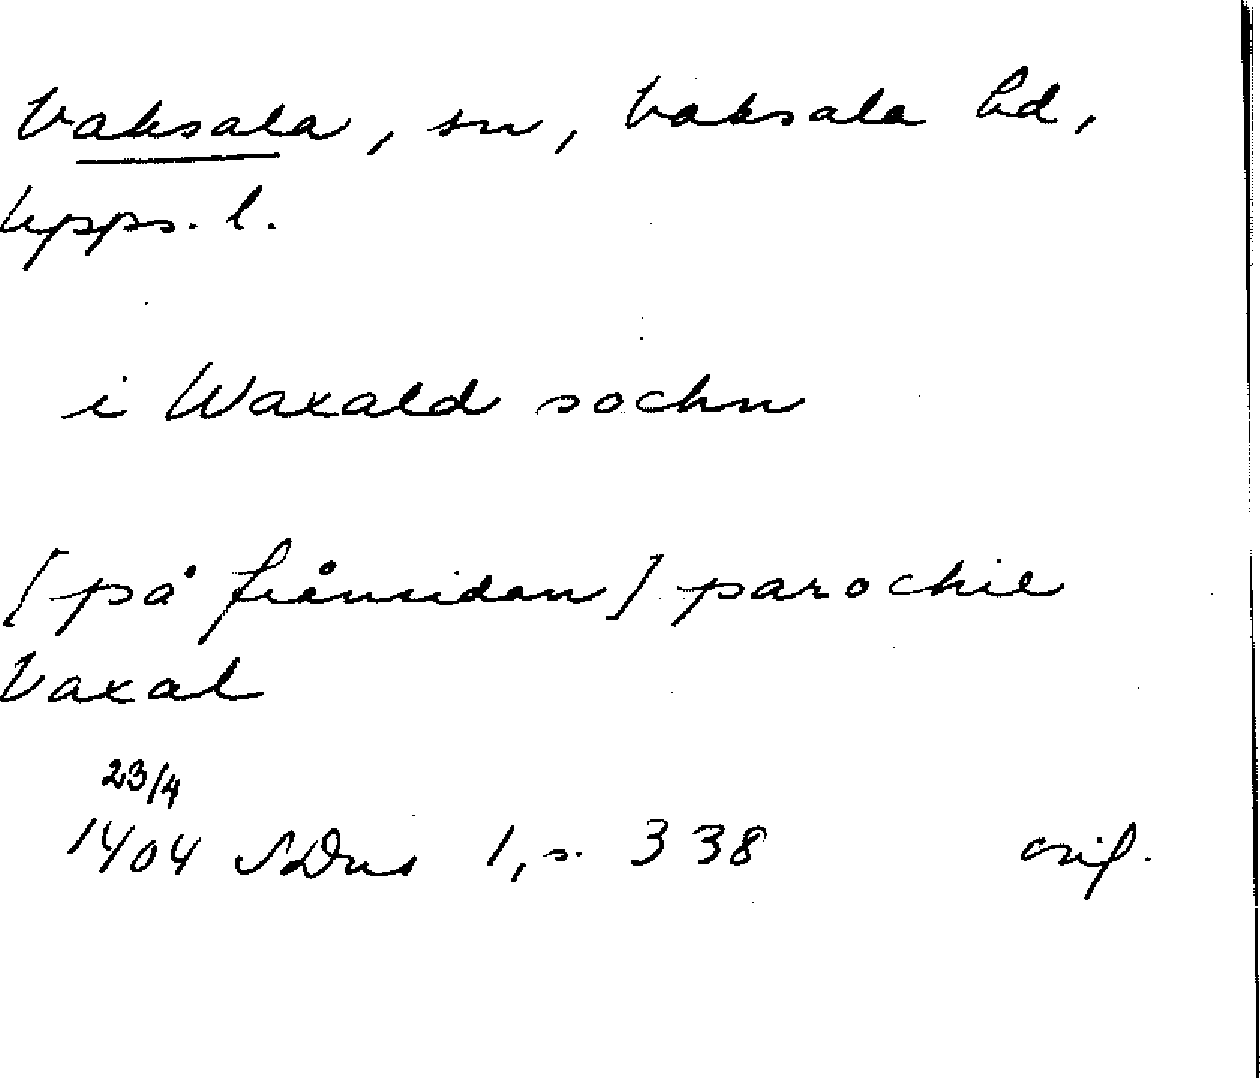 Vaksala, sn, Vaksala hd,
Upps. l.
i Waxald sochn
[på frånsidan] parochie
Vaxal
23/4
1404 SDns 1, s. 338 orig.